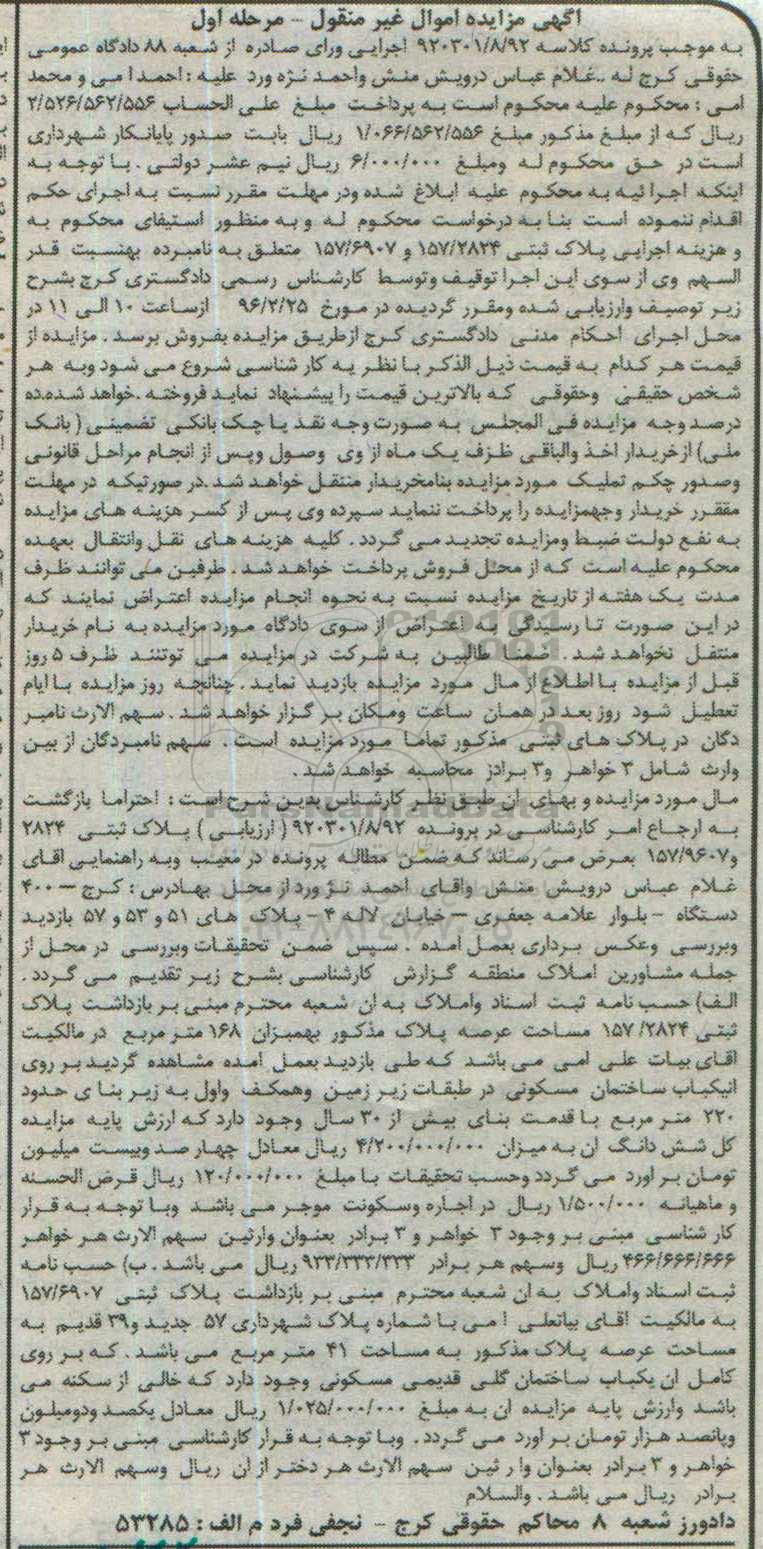 آگهی مزایده اموال غیر منقول - مرحله اول
به موجب پرونده کلاسه ۹۲۰۳۰۱/۸/۹۲ اجرایی ورای صادره از شعبه ۸۸ دادگاه عمومی
حقوقی کرج له ..غلام عباس درویش منش واحمد نژه ورد علیه : احمد امی و محمد
امی : محکوم علیه محکوم است به پرداخت مبلغ علی الحساب ۲/۵۲۶/۵۶۲/۵۵۶
ریال که از مبلغ مذکور مبلغ ۱/۰۶۶/۵۶۲/۵۵۶ ریال بابت صدور پایانکار شهرداری
است در حق محکوم له ومبلغ ۶/۰۰۰/۰۰۰ ریال نیم عشر دولتی . با توجه به
اینکه اجرا ئیه به محکوم علیه ابلاغ شده ودر مهلت مقرر نسبت به اجرای حکم
اقدام ننموده است بنا به درخواست محکوم له و به منظور استیفای محکوم به
و هزینه اجرایی پلاک ثبتی ۱۵۷/۲۸۲۴ و ۱۵۷/۶۹۰۷ متعلق به نامبرده بهنسبت قدر
السهم وی از سوی این اجرا توقیف وتوسط کارشناس رسمی دادگستری کرج بشرح
زیر توصیف وارزیابی شده ومقرر گردیده در مورخ ۹۶/۲/۲۵ ازساعت ۱۰ الی ۱۱ در
محل اجرای احکام مدنی دادگستری کرج ازطریق مزایده بفروش برسد . مزایده از
قیمت هر کدام به قیمت ذیل الذکر با نظر یه کار شناسی شروع می شود وبه هر
شخص حقیقی وحقوقی که بالاترین قیمت را پیشنهاد نماید فروخته .خواهد شد.ده
درصد وجه مزایده فی المجلس به صورت وجه نقد یا چک بانکی تضمینی ( بانک
ملی) از خریدار اخذ والباقی ظرف یک ماه از وی وصول وپس از انجام مراحل قانونی
وصدور چکم تملیک مورد مزایده بنامخریدار منتقل خواهد شد .در صورتیکه در مهلت
مققرر خریدار وجهمزایده را پرداخت ننماید سپرده وی پس از کسر هزینه های مزایده
به نفع دولت ضبط ومزایده تجدید می گردد . کلیه هزینه های نقل وانتقال بعهده
محکوم علیه است که از محل فروش پرداخت خواهد شد . طرفین می توانند ظرف
مدت یک هفته از تاریخ مزایده نسبت به نحوه انجام مزایده اعتراض نمایند که
در این صورت تا رسیدگی به اعتراض از سوی دادگاه مورد مزایده به نام خریدار
منتقل نخواهد شد . ضمنا طالبین به شرکت در مزایده می توتنند ظرف ۵ روز
قبل از مزایده با اطلاع از مال مورد مزایده بازدید نماید . چنانچه روز مزایده با ایام
تعطیل شود روز بعد در همان ساعت ومکان بر گزار خواهد شد . سهم الارث نامبر
دگان در پلاک های ثبتی مذکور تماما مورد مزایده است . سهم نامبردگان از بین
وارث شامل ۳ خواهر و۳ برادز محاسبه خواهد شد .
مال مورد مزایده و بهای ان طبق نظر کارشناس بدین شرح است : احتراما بازگشت
به ارجاع امر کارشناسی در پرونده ۹۲۰۳۰۱/۸/۹۲ ( ارزیابی ) پلاک ثبتی ۲۸۲۴
و۱۵۷/۹۶۰۷ بعرض می رساند که ضمن مطاله پرونده در معیب وبه راهنمایی اقای
غلام عباس درویش منش واقای احمد نژ ورد از محل بهادرس : کرج – ۴۰۰
دستگاه - بلوار علامه جعفری – خیابان لاله ۴ - پلاک های ۵۱ و ۵۳ و ۵۷ بازدید
وبررسی وعکس برداری بعمل امده . سپس ضمن تحقیقات وبررسی در محل از
جمله مشاورین املاک منطقه گزارش کارشناسی بشرح زیر تقدیم می گردد .
الف) حسب نامه ثبت اسناد واملاک به ان شعبه محترم مبنی بر بازداشت پلاک
ثبتی ۱۵۷/۲۸۲۴ مساحت عرصه پلاک مذکور بهمیزان ۱۶۸ متر مربع در مالکیت
اقای بیات علی امی می باشد که طی بازدید بعمل امده مشاهده گردید بر روی
انیکباب ساختمان مسکونی در طبقات زیر زمین وهمکف واول به زیر بنا ی حدود
۲۲۰ متر مربع با قدمت بنای بیش از ۳۰ سال وجود دارد که ارزش پایه مزایده
کل شش دانگ ان به میزان ۴/۲۰۰/۰۰۰/۰۰۰ ریال معادل چهار صد وبیست میلیون
تومان بر اورد می گردد وحسب تحقیقات با مبلغ ۱۲۰/۰۰۰/۰۰۰ ریال قرض الحسنه
و ماهیانه ۱/۵۰۰/۰۰۰ ریال در اجاره وسکونت موجر می باشد وبا توجه به قرار
کار شناسی مبنی بر وجود ۳ خواهر و ۳ برادر بعنوان وارثین سهم الارث هر خواهر
۴۶۶/۶۶۶/۶۶۶ ریال وسهم هر برادر ۹۳۳/۳۳۳/۳۳۳ ریال می باشد . ب) حسب نامه
ثبت اسناد واملاک به ان شعبه محترم مبنی بر بازداشت پلاک ثبتی ۱۵۷/۶۹۰۷
به مالکیت اقای بیاتعلی امی با شماره پلاک شهرداری ۵۷ جدید و۳۹ قدیم به
مساحت عرصه پلاک مذکور به مساحت ۴۱ متر مربع می باشد . که بر روی
کامل ان یکباب ساختمان گلی قدیمی مسکونی وجود دارد که خالی از سکنه می
باشد وارزش پایه مزایده ان به مبلغ ۱/۰۲۵/۰۰۰/۰۰۰ ریال معادل یکصد ودومیلون
وپانصد هزار تومان بر اورد می گردد . وبا توجه به قرار کارشناسی مبنی بر وجود ۳
خواهر و ۳ برادر بعنوان وا ر ثین سهم الارث هر دختر از ان ریال وسهم الارث هر
برادر ریال می باشد . والسلام
دادورز شعبه ۸ محاکم حقوقی کرج - نجفی فرد م الف : ۵۳۲۸۵